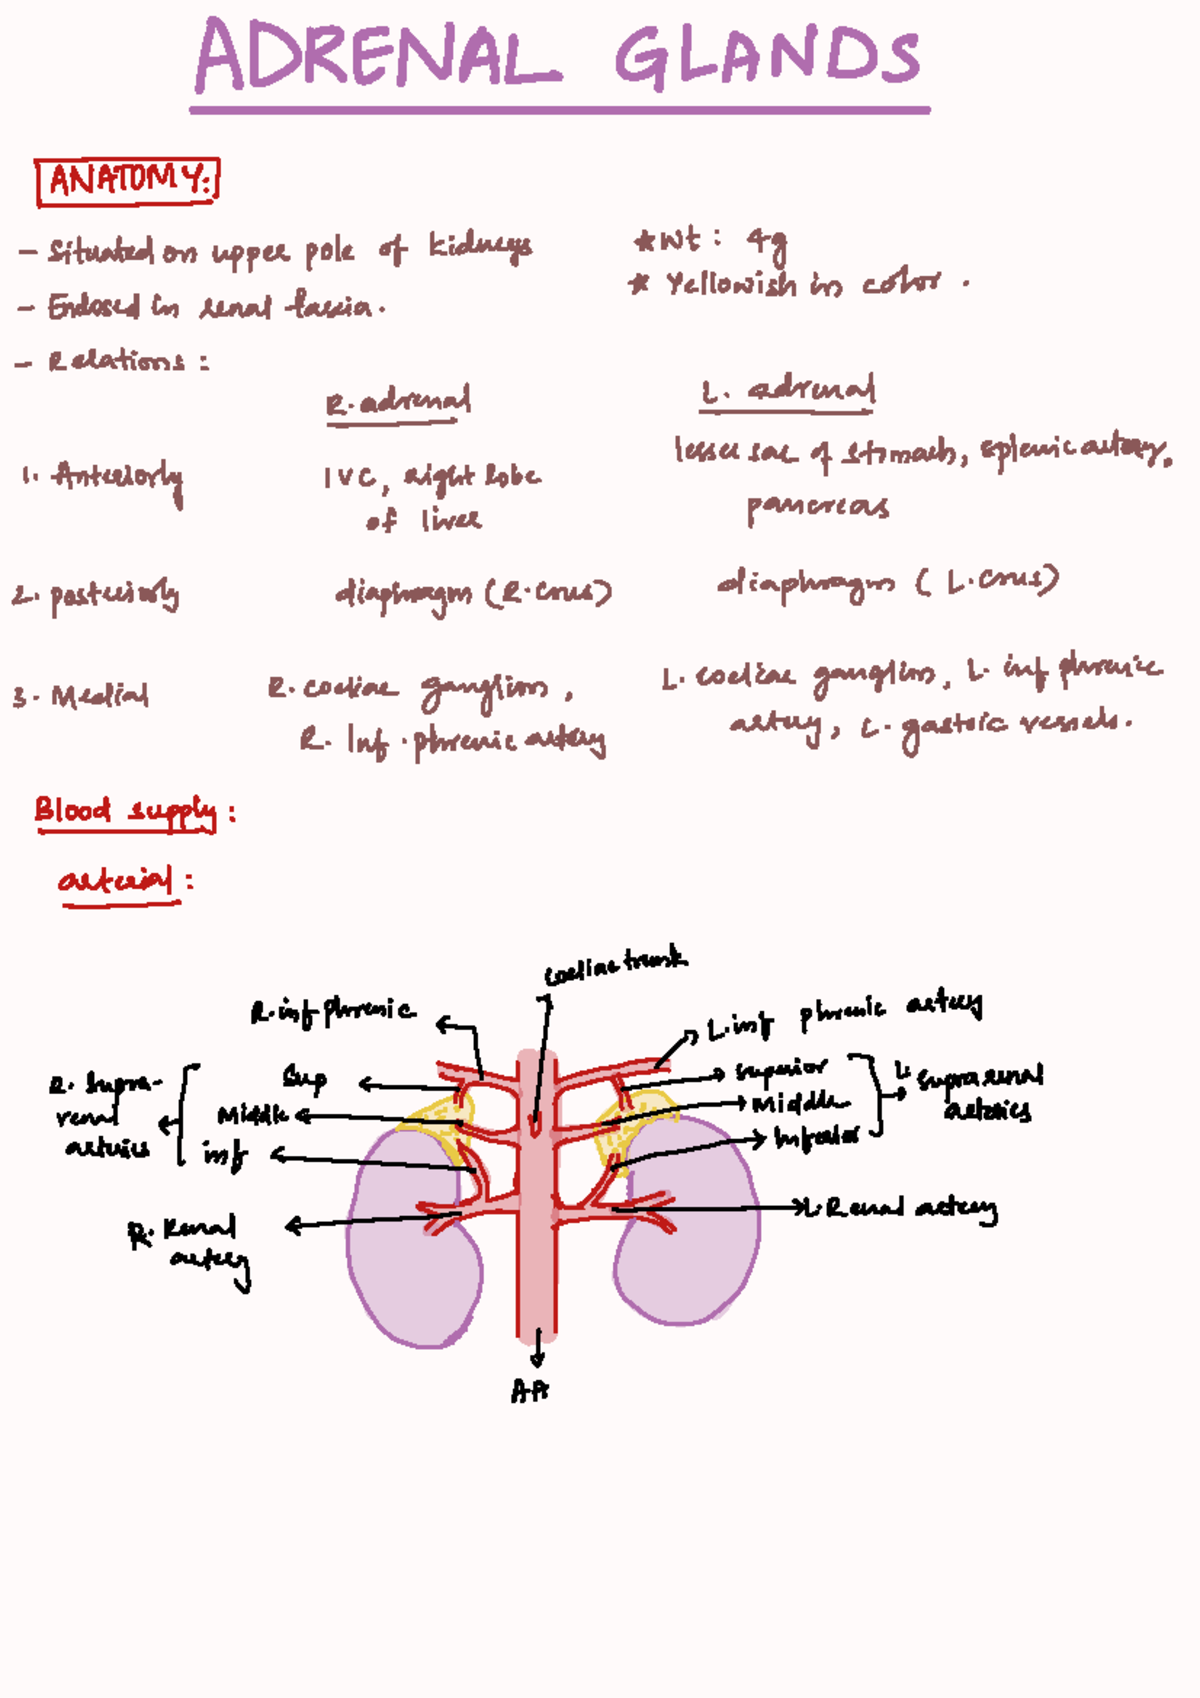 ADRENAL GLANDS
ANATOMY:
- Situated on upper pole of kidneys
* Wt : 4g
- Enclosed in renal fascia.
* Yellowish in color .
- Relations :
R. adrenal
L. adrenal
1. Anteriorly
IVC, right lobe
of liver
lesser sac of stomach, splenic artery,
pancreas
2. posteriorly
diaphragm (R. crus)
diaphragm ( L. crus)
3. Medial
R. coeliac ganglion ,
R. Inf. phrenic artery
L. coeliac ganglion, L. inf phrenic
artery, L. gastric vessels.
Blood supply :
arterial :
coeliac trunk
R. inf phrenic
L. inf phrenic artery
R. Supra-
renal
arteries
Sup
Middle
inf
superior
Middle
Inferior
L. suprarenal
arteries
R. Renal
artery
L. Renal artery
AA